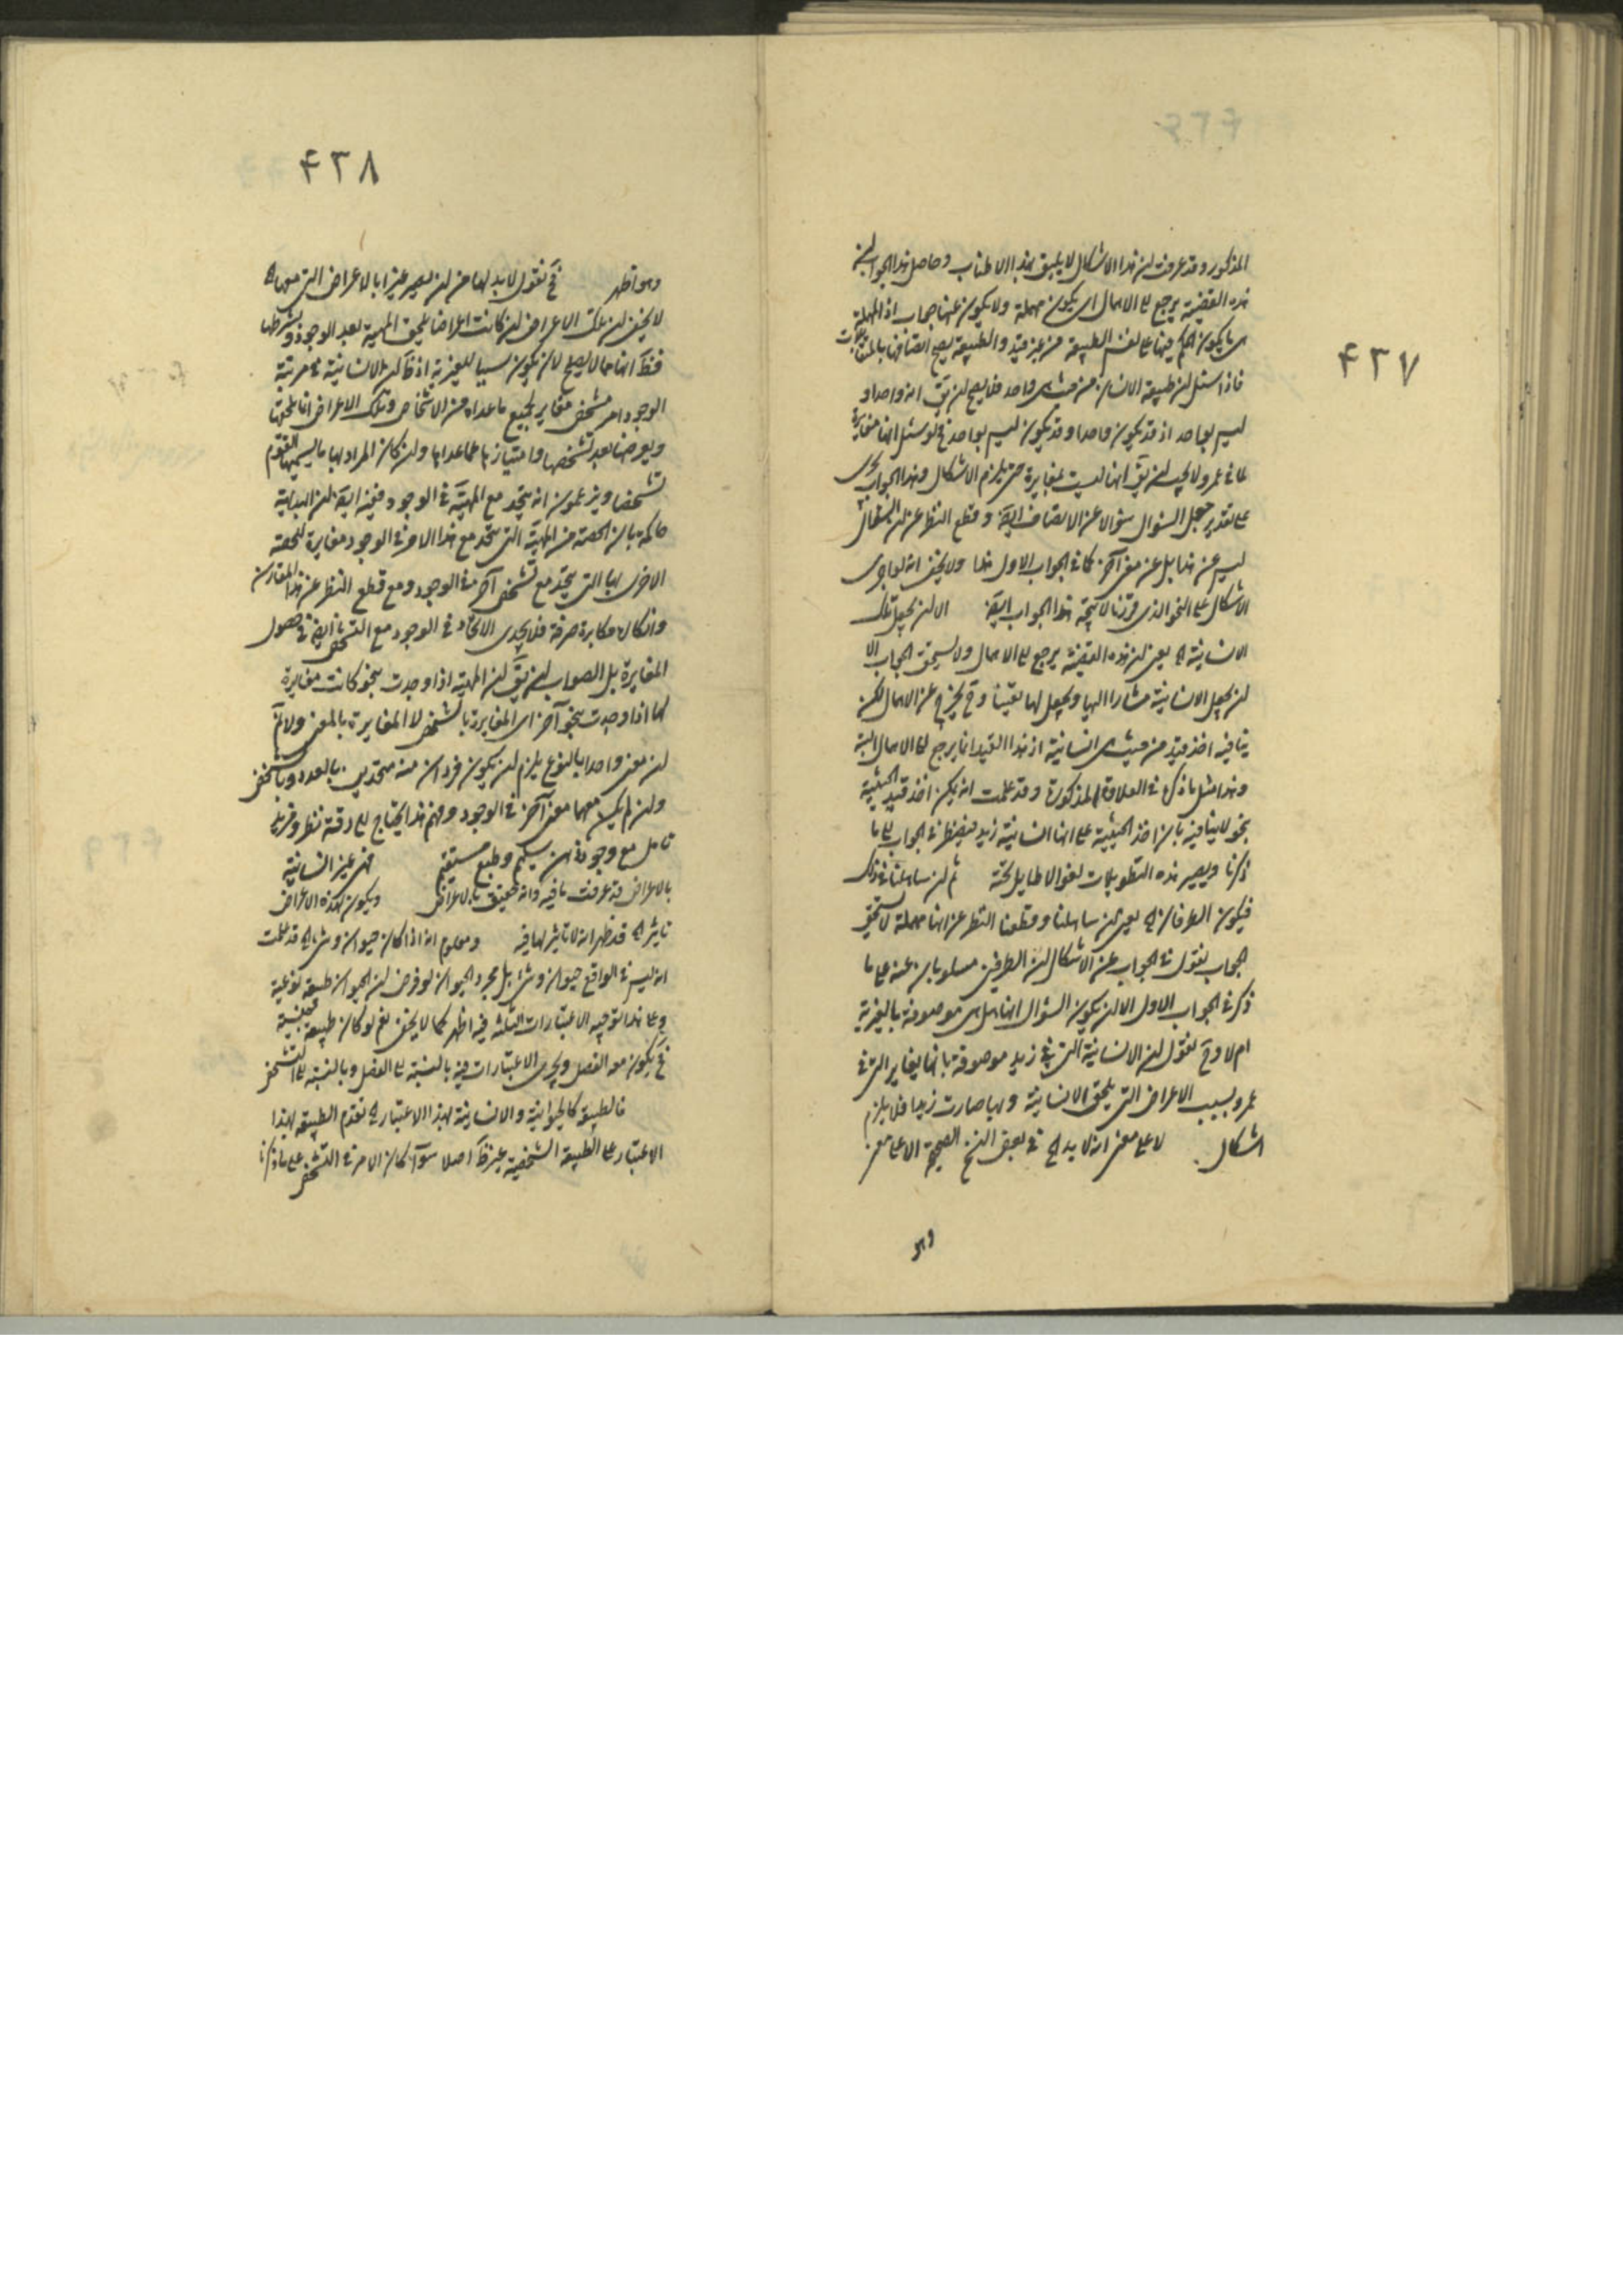 ۴۳۷
المذكور وقد عرفت ان هذا الاشكال لا يليق بهذا الاطناب وحاصل هذا الجواب ان
هذه القضية يرجع الى الاهمال اى يكون مهملة ولا يكون عنها جواب اذ المهملة
ما يكون الحكم فيها على نفس الطبيعة من غير قيد والطبيعة يصح اتصافها بالمتقابلات
فاذا سئل ان طبيعة الانسان من حيث هى واحد فلا يصح ان يق انه واحد او
ليس بواحد اذ قد يكون واحدا وقد يكون ليس بواحد فح لو سئل انها مغايرة
لما فى عمرو لا يجب ان يق انها ليست بمغايرة حتى يلزم الاشكال وهذا الجواب يجرى
على تقدير جعل السؤال سؤالا عن الاتصاف ايضا وقطع النظر عن ان السؤال
ليس عن هذا بل عن معنى آخر كما فى الجواب الاول هذا ولا يخفى انه لو اجرى
الاشكال على النحو الذى قررنا لا يتجه هذا الجواب ايضا الا ان يجعل تلك
الانسانية اه يعنى ان هذه القضية يرجع الى الاهمال ولا يستحق الجواب الا
ان يجعل الانسانية مشارا اليها ويجعل لها تعينا وح يخرج عن الاهمال لكن
ينافيه اخذ قيد من حيث هى انسانية اذ هذا القيد انما يرجع الى الاهمال البتة
وهذا مثل ما ذكره فى العلاوة المذكورة وقد علمت انه يمكن اخذ قيد الحيثية
بنحو لا ينافيه بان اخذ الحيثية على انها انسانية زيد فيضطر فى الجواب الى ما
ذكرنا ويصير هذه التطويلات لغوا لا طايل تحته ثم ان ساهلنا فى ذلك
فيكون الطرفان اه يعنى ان ساهلنا وقطعنا النظر عن انها مهملة لا تستحق
الجواب نقول فى الجواب عن الاشكال ان الطرفين مسلوبان عنه على ما
ذكر فى الجواب الاول الا ان يكون السؤال انها هل هى موصوفة بالغيرية
ام لا وح نقول ان الانسانية التى فى زيد موصوفة بانها يغاير التى فى
عمرو بسبب الاعراض التى يلحق الانسانية وبها صارت زيدا فلا يلزم
اشكال لا على معنى انه لا بد اه فى بعض النسخ الصحيحة الا على معنى
وهو
۴۳۸
وهو اظهر فح نقول لا بد لها من ان يصير غيرا بالاعراض التى معها اه
لا يخفى ان تلك الاعراض ان كانت اعراضا يلحق المهية بعد الوجود وبشرطها
فظ انها مما لا يصلح لان يكون سببا للغيرية اذ ظ ان الانسانية فى مرتبة
الوجود امر مشخص مغاير لجميع ما عداه من الاشخاص وتلك الاعراض انما يلحقها
ويعرضها بعد تشخصها وامتيازها عما عداها وان كان المراد بها ما يسميها القوم
تشخصا ويزعمون انه يتحد مع المهية فى الوجود ففيه ايضا ان البداهة
حاكمة بان الحصة من المهية التى يتحد مع هذا الامر فى الوجود مغايرة للحصة
الاخرى بها التى يتحد مع تشخص آخر فى الوجود ومع قطع النظر عن هذا المقارن
وانكاره مكابرة صرفة فلا يجدى الاتحاد فى الوجود مع التشخص ايضا فى حصول
المغايرة بل الصواب ان يق ان المهية اذا وجدت بنحو كانت مغايرة
لها اذا وجدت بنحو آخر اى المغايرة بالتشخص لا المغايرة بالمعنى ولا نم
ان معنى واحدا بالنوع يلزم ان يكون فردان منه متحدين بالعدد وبالشخص
وان لم يكن معهما معنى آخر فى الوجود وفهم هذا يحتاج الى دقة نظر وفرط
تامل مع وجود ذهن سليم وطبع مستقيم فهى غير انسانية
بالاعراض قد عرفت ما فيه وانه حقيق بالاعراض ويكون لهذه الاعراض
تاثير اه قد ظهر انه لا تاثير لها فيه ومعلوم انه اذا كان حيوان وشئ اه قد علمت
انه ليس فى الواقع حيوان وشئ بل مجرد الحيوان لو فرض ان الحيوان طبيعة نوعية
وعلى هذا التوجيه الاعتبارات الثلثة فيه اظهر كما لا يخفى نعم لو كان طبيعة جنسية
فح يكون معه الفصل ويجرى الاعتبارات فيه بالنسبة الى الفصل وبالنسبة الى التشخص
فالطبيعة كالحيوانية والانسانية بهذا الاعتبار اه تقدم الطبيعة بهذا
الاعتبار على الطبيعة الشخصية غير ظ اصلا سواء كان الامر فى التشخص على ما ذكرنا